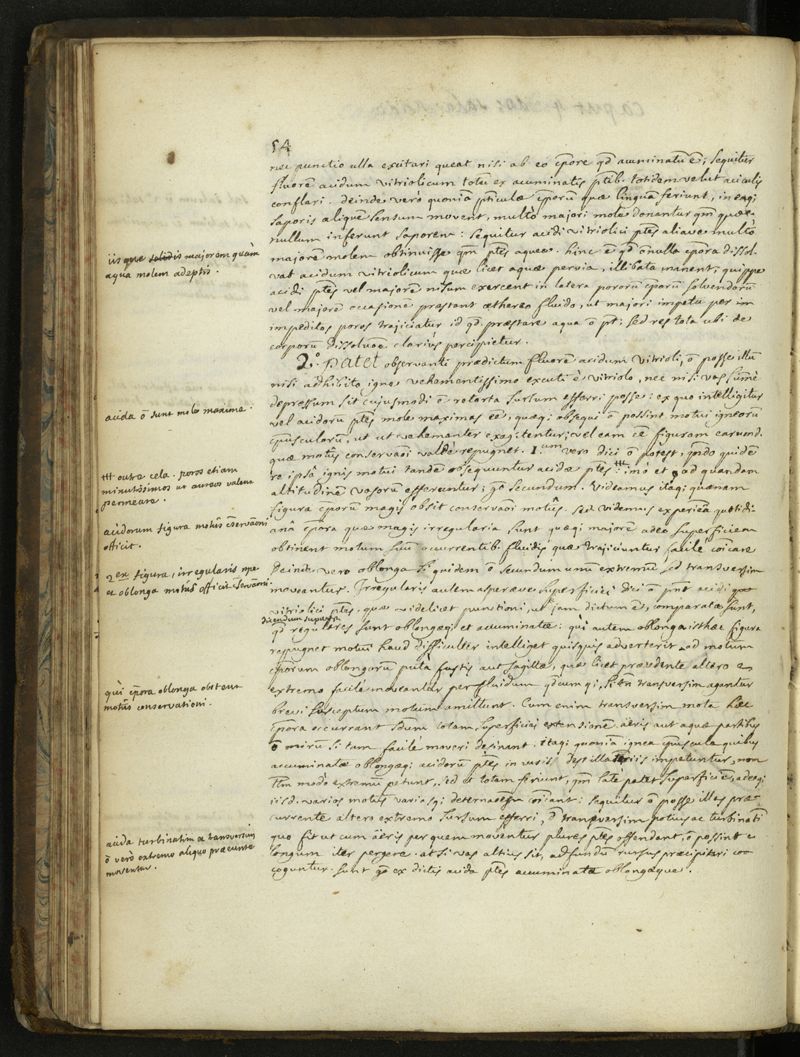 54
nec punctio ulla excitari queat nisi ab eo c̄pore qd acuminatū ē; sequitur
fluorē acidum vitriolicum totū ex acuminatis ptib. totidem velut aciculis
conflari. deinde vero quoniā pticulæ cporū quæ linguā feriunt, in eaq;
saporis aliquē sensum movent, multò majori mole donantur qm quæ
nullum inferunt saporem: sequitur acidi vitriolici ptes aliave multò
majorē molem obtinuisse qm ptes aqueæ. hinc ē qd ōnulla cpora dissol-
vat acidum vitriolicum quæ licet aquæ pervia, illibata manent; quippe
acidi ptes vel majorē nisum exercent in latera pororū cporū solvendorū
vel majorē occasionē præstant æthereo fluido, ut majori impetu per im
impeditos poros trajiciatur id qd præstare aqua ō pt: sed res tota ubi de
corporū dissolutōe clarius percipietur.
2.° Patet observanti prædictum fluorē acidum vitrioli, ō posse illū
nisi adhibito igne vehementissimo excuti è vitriolo, nec nisi vas sūmè
depressum sit cujusmodi ē retorta sursum efferri posse: ex quo intelligitur
vel acidorū ptes mole maximas eē, quæq; obsequi ō possint motui igneorū
cpusculorū, ut ut vehementer exagitentur; vel eam eē figuram earumd.
quæ motûs conservaōi valdè repugnet. 1.um vero dici ō potest, qndo quidē
re ipsâ ignis motui tandē obsequuntur acidæ ptes ttt imò et ad quandam
altitudinē vasorū efferuntur; go secundum. Videamus itaq; quænam
figura cporū magis obsit conservaōi motûs. sed videmus experiēa quotidi-
anâ cpora quæ magis irregularia sunt quæq; majorē adeo superficiem
obtinent motum suū occurrentib. fluidis quæ trajiciuntur facilè cōicare
deinde vero oblonga siquidem ō secundum unū extremū sed transversim
moveantur. Irregularis autem asperæve superficiei dici ō pnt acidi
vitriolici ptes. quæ videlicet punctioni, ut jam dictum ē, comparatæ sunt,
dicendum superest
qd regulares sunt oblongæq; et acuminatæ: qui autem oblonga isthæc figura
repugnet motui haud difficulter intelliget quisquis adverterit ad motum
cporum oblongorū putà fustis aut sagittæ, quæ licet præcedente altero
extremo facilè moveantur per fluidum qdcumq;, si tn transversim agantur
brevi susceptum motum amittunt. Cum enim transversim mota hæc
cpora occurrant sdum totam superficiei extensionē aeris aut aquæ partibus
ō mirū si tam facilè moveri desinant. Itaq; quoniā ignea cpuscula quibus
acuminatæ oblongæq; acidorū ptes in vasis destillatoriis impetuntur, non
tm modo extremū petunt, sed et totam feriunt, qm latè patet superficiē, adeoq;
iisd. varios motus variasq; determinaōes cōicant: sequitur ō posse illas præ-
currente altero extremo sursum efferri, ō transversim potius ac turbinati
quo fit ut cum aeris per quem moventur plures ptes offendant, ō possint
longum iter pergere. at si vas altius sit, ad fundū rursus præcipitari co-
coguntur. sunt go ex dictis acida ptes accuminatæ oblongæque.
iis quæ solidis majorem quàm
aqua molem adeptis.
acida ō sunt mole maxima.
ttt outre cela. poros etiam
minutissimos ut aureos valent
permeare.
acidorum figura motûs cservaōni
officit.
2 ex figura, irregularis nempe
et oblonga motûs officit cservaōni.
quî cpora oblonga obstent
motûs conservationi.
acida turbinatim ac transversim
ō verò extremo aliquo præeunte
moventur.